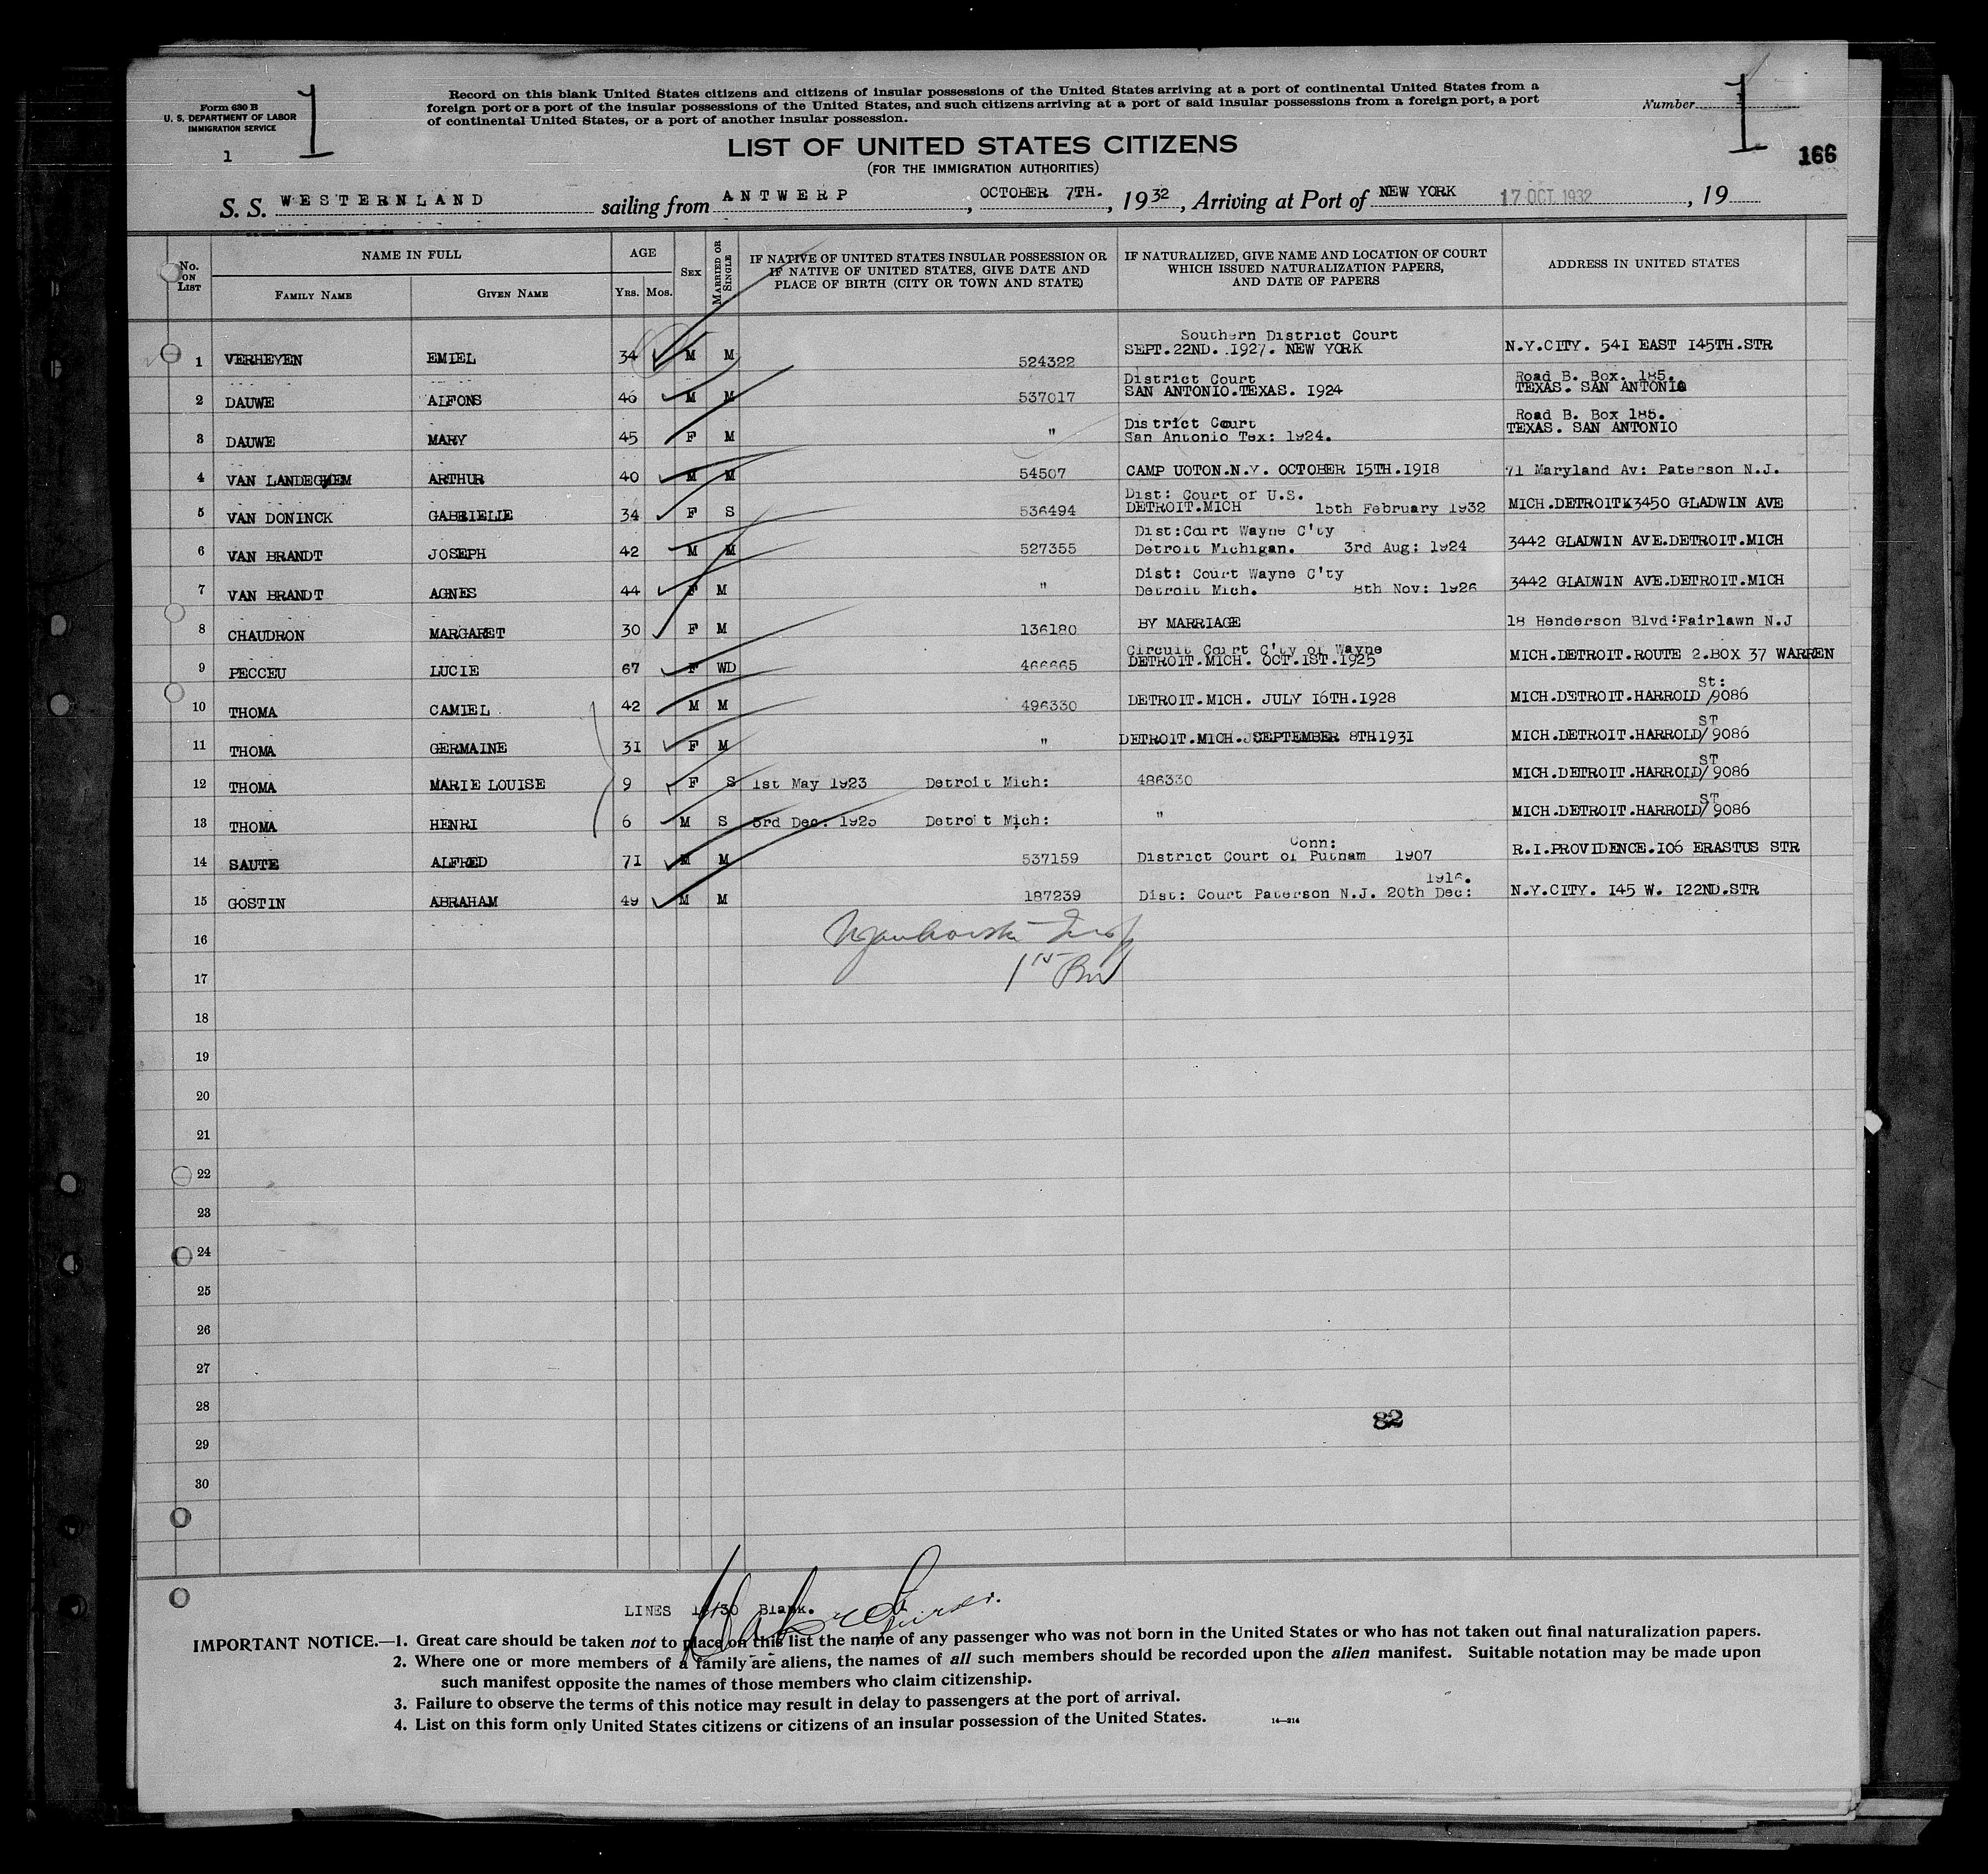 Form 630 B
U. S. DEPARTMENT OF LABOR
IMMIGRATION SERVICE
1
1
Record on this blank United States citizens and citizens of insular possessions of the United States arriving at a port of continental United States from a
foreign port or a port of the insular possessions of the United States, and such citizens arriving at a port of said insular possessions from a foreign port, a port
of continental United States, or a port of another insular possession.
Number 1
166
LIST OF UNITED STATES CITIZENS
(FOR THE IMMIGRATION AUTHORITIES)
S. S. WESTERNLAND sailing from ANTWERP, OCTOBER 7TH., 1932, Arriving at Port of NEW YORK 17 OCT 1932, 19
No. ON LIST
NAME IN FULL
FAMILY NAME GIVEN NAME
AGE
YRS. MOS.
SEX
MARRIED OR SINGLE
IF NATIVE OF UNITED STATES INSULAR POSSESSION OR
IF NATIVE OF UNITED STATES, GIVE DATE AND
PLACE OF BIRTH (CITY OR TOWN AND STATE)
IF NATURALIZED, GIVE NAME AND LOCATION OF COURT
WHICH ISSUED NATURALIZATION PAPERS,
AND DATE OF PAPERS
ADDRESS IN UNITED STATES
Southern District Court
1 VERHEYEN EMIEL 34 M M 524322 SEPT.22ND. 1927. NEW YORK N.Y.CITY. 541 EAST 145TH.STR
District Court Road B. Box. 185.
2 DAUWE ALFONS 46 M M 537017 SAN ANTONIO.TEXAS. 1924 TEXAS. SAN ANTONIO
District Court Road B. Box 185.
3 DAUWE MARY 45 F M " San Antonio Tex: 1924. TEXAS. SAN ANTONIO
4 VAN LANDEGHEM ARTHUR 40 M M 54507 CAMP UOTON.N.Y. OCTOBER 15TH.1918 71 Maryland Av: Paterson N.J.
Dist: Court of U.S.
5 VAN DONINCK GABRIELLE 34 F S 536494 DETROIT.MICH 15th February 1932 MICH.DETROITK3450 GLADWIN AVE
Dist:Court Wayne C'ty
6 VAN BRANDT JOSEPH 42 M M 527355 Detroit Michigan. 3rd Aug: 1924 3442 GLADWIN AVE.DETROIT.MICH
Dist: Court Wayne C'ty
7 VAN BRANDT AGNES 44 F M " Detroit Mich. 8th Nov: 1926 3442 GLADWIN AVE.DETROIT.MICH
8 CHAUDRON MARGARET 30 F M 136180 BY MARRIAGE 18 Henderson Blvd:Fairlawn N.J
Circuit Court C'ty of Wayne
9 PECCEU LUCIE 67 F WD 466665 DETROIT.MICH. OCT.1ST.1925 MICH.DETROIT.ROUTE 2.BOX 37 WARREN
St:
10 THOMA CAMIEL 42 M M 496330 DETROIT.MICH. JULY 16TH.1928 MICH.DETROIT.HARROLD/9086
ST
11 THOMA GERMAINE 31 F M " DETROIT.MICH. SEPTEMBER 8TH1931 MICH.DETROIT.HARROLD/9086
ST
12 THOMA MARIE LOUISE 9 F S 1st May 1923 Detroit Mich: 486330 MICH.DETROIT.HARROLD/9086
ST
13 THOMA HENRI 6 M S 3rd Dec: 1925 Detroit Mich: " MICH.DETROIT.HARROLD/9086
Conn:
14 SAUTE ALFRED 71 M M 537159 District Court of Putnam 1907 R.I.PROVIDENCE.106 ERASTUS STR
1916.
15 GOSTIN ABRAHAM 49 M M 187239 Dist: Court Paterson N.J. 20th Dec: N.Y.CITY. 145 W. 122ND.STR
16
17
18
19
20
21
22
23
24
25
26
27
28
82
29
30
LINES 16/30 Blank.
IMPORTANT NOTICE.—1. Great care should be taken not to place on this list the name of any passenger who was not born in the United States or who has not taken out final naturalization papers.
2. Where one or more members of a family are aliens, the names of all such members should be recorded upon the alien manifest. Suitable notation may be made upon
such manifest opposite the names of those members who claim citizenship.
3. Failure to observe the terms of this notice may result in delay to passengers at the port of arrival.
4. List on this form only United States citizens or citizens of an insular possession of the United States. 14—214